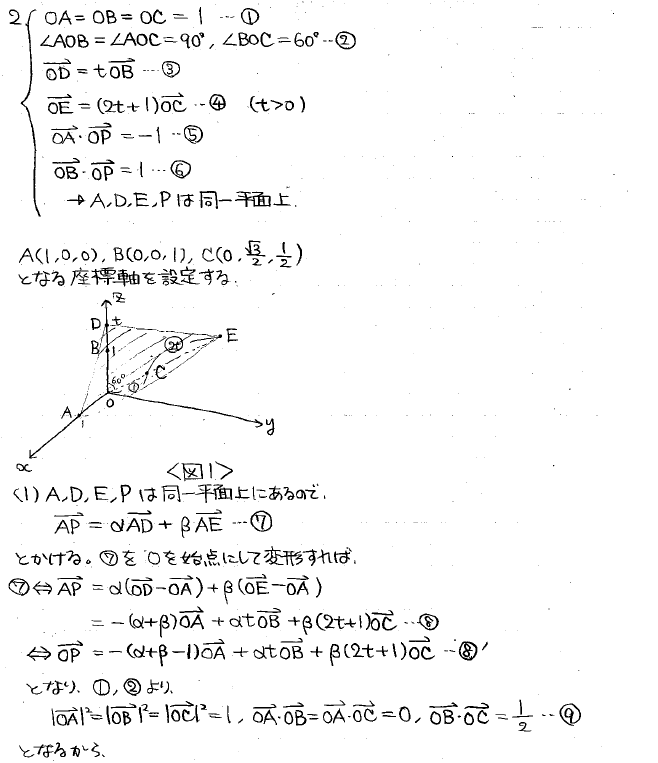 2 OA=OB=OC=1 …①
∠AOB=∠AOC=90°, ∠BOC=60° …②
OD→=tOB→ …③
OE→=(2t+1)OC→ …④ (t>0)
OA→・OP→=-1 …⑤
OB→・OP→=1 …⑥
→A,D,E,Pは同一平面上.
A(1,0,0), B(0,0,1), C(0,√3/2,1/2)
となる座標軸を設定する.
z
D t
E
B 1
2t
60° ① C
A 1 O
y
x
<図1>
(1) A,D,E,Pは同一平面上にあるので.
AP→=αAD→+βAE→ …⑦
とかける。⑦をOを始点にして変形すれば.
⑦⇔AP→=α(OD→-OA→)+β(OE→-OA→)
=-(α+β)OA→+αtOB→+β(2t+1)OC→ …⑧
⇔OP→=-(α+β-1)OA→+αtOB→+β(2t+1)OC→ …⑧'
となり、①,②より.
|OA→|²=|OB→|²=|OC→|²=1, OA→・OB→=OA→・OC→=0, OB→・OC→=1/2 …⑨
となるから、